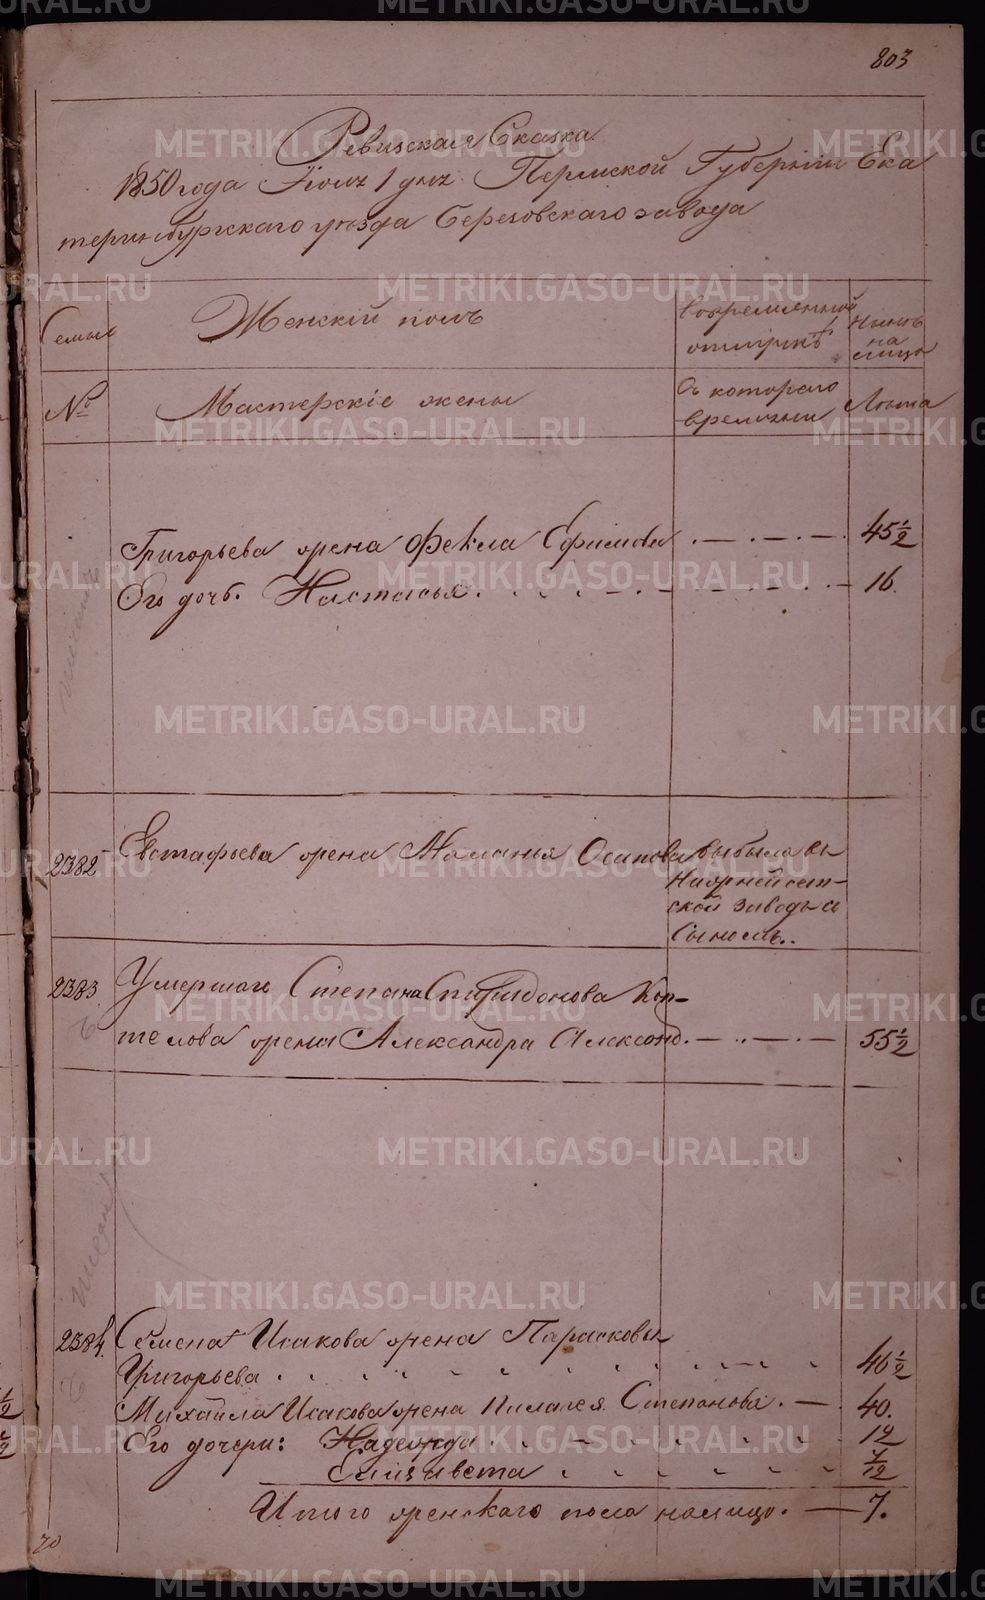 803
Ревизская Сказка
1850 года Іюня 1 дня Пермской Губерніи Ека
теринбургскаго уѣзда Березовскаго завода
Семьи
Женскій полъ
Во временной
отлучкѣ
Нынѣ
на
лицо
№
Мастерскіе жены
Съ котораго
времени
Лѣта
Григорьева жена Фекла Ефимова 45½
Его дочь Настасья 16.
2382 Евстафьева жена Маланья Осипова выбыла въ
ской заводъ съ
сыномъ.
2383 Умершаго Степана Спиридонова Коп-
телова жена Александра Александ. 55½
2384. Семена Исакова жена Парасковья
Григорьева 46½
Михайла Исакова жена Пилагея Степанова 40.
Его дочери: Надежда 12
Елизавета 7/12
Итого женскаго пола налицо. 7.
METRIKI.GASO-URAL.RU